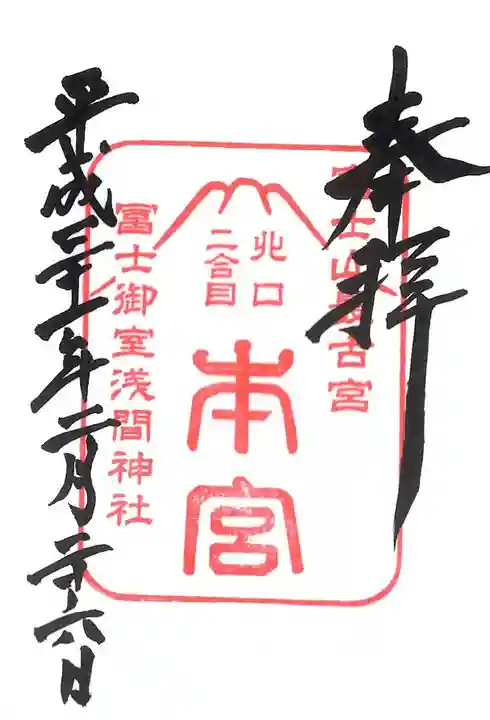 奉拝
冨士山最古宮
北口
二合目
本宮
冨士御室浅間神社
平成三十一年二月二十六日